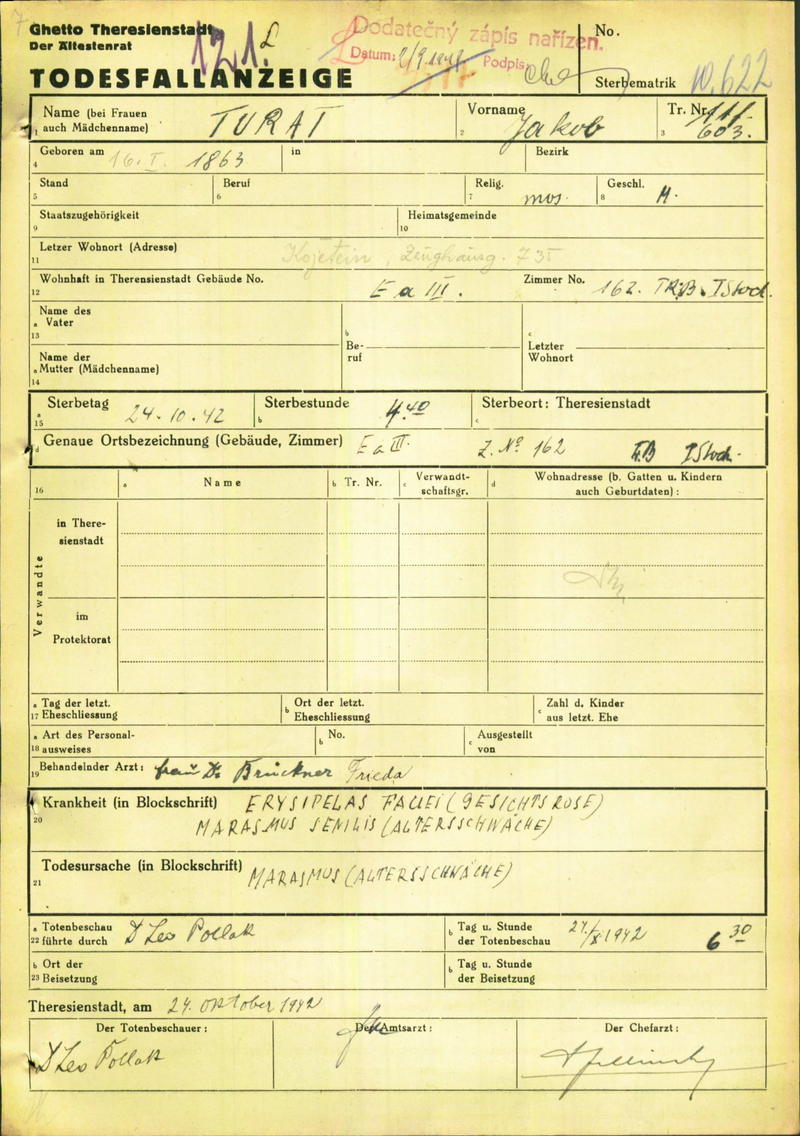 Ghetto Theresienstadt
Der Ältestenrat
TODESFALLANZEIGE
12.1.
Dodatečný zápis nařízen.
Datum: Podpis:
No.
Sterbematrik 10.622
Name (bei Frauen auch Mädchenname) TURAT
1
Vorname Jakob
2
Tr. Nr. 603.
3
Geboren am 16. I. 1863
4
in
Bezirk
Stand
5
Beruf
6
Relig. mos.
7
Geschl. M.
8
Staatszugehörigkeit
9
Heimatsgemeinde
10
Letzer Wohnort (Adresse) Kojetein, Zeughausg. 735
11
Wohnhaft in Therensienstadt Gebäude No. E a III.
12
Zimmer No. 162. I Stock.
Name des
a Vater
13
Name der
a Mutter (Mädchenname)
14
b
Be-
ruf
c
Letzter
Wohnort
a Sterbetag 24.10.42
15
b Sterbestunde 4.40
c Sterbeort: Theresienstadt
d Genaue Ortsbezeichnung (Gebäude, Zimmer) E a III. Z. No 162 I Stock.
16
a Name
b Tr. Nr.
c Verwandt-
schaftsgr.
d Wohnadresse (b. Gatten u. Kindern
auch Geburtdaten) :
Verwandte
in There-
sienstadt
im
Protektorat
a Tag der letzt.
17 Eheschliessung
b Ort der letzt.
Eheschliessung
c Zahl d. Kinder
aus letzt. Ehe
a Art des Personal-
18 ausweises
b No.
c Ausgestellt
von
Behandelnder Arzt: Frau Dr. Bruckner Frieda
19
Krankheit (in Blockschrift) ERYSIPELAS FACIEI (GESICHTSROSE)
20
MARASMUS SENILIS (ALTERSSCHWÄCHE)
Todesursache (in Blockschrift) MARASMUS (ALTERSSCHWÄCHE)
21
a Totenbeschau
22 führte durch D Leo Pollak
b Tag u. Stunde
der Totenbeschau 24./X 1942 6 30
b Ort der
23 Beisetzung
b Tag u. Stunde
der Beisetzung
Theresienstadt, am 24. Oktober 1942
Der Totenbeschauer :
D Leo Pollak
Der Amtsarzt :
Der Chefarzt :